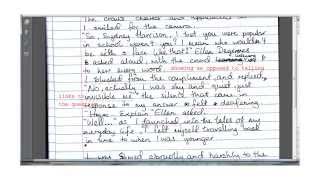 The crowd cheered and applauded as
I smiled for the camera.
"So, Sydney Harrison, I bet you were popular
in school weren't you? I mean who wouldn't
be with a face like that!" Ellen Degeneres
asked aloud with the crowd
to her every word. showing as opposed to telling
I blushed from the compliment and replied,
"No, actually I was shy and quiet, just
invisible." the silence that came in
links to
the question
response to my answer felt deafening.
"Hmm... Explain" Ellen asked.
"Well..." as I launched into the tales of my
everyday life, I felt myself travelling back
in time to when I was younger.
I was shoved abruptly and harshly to the